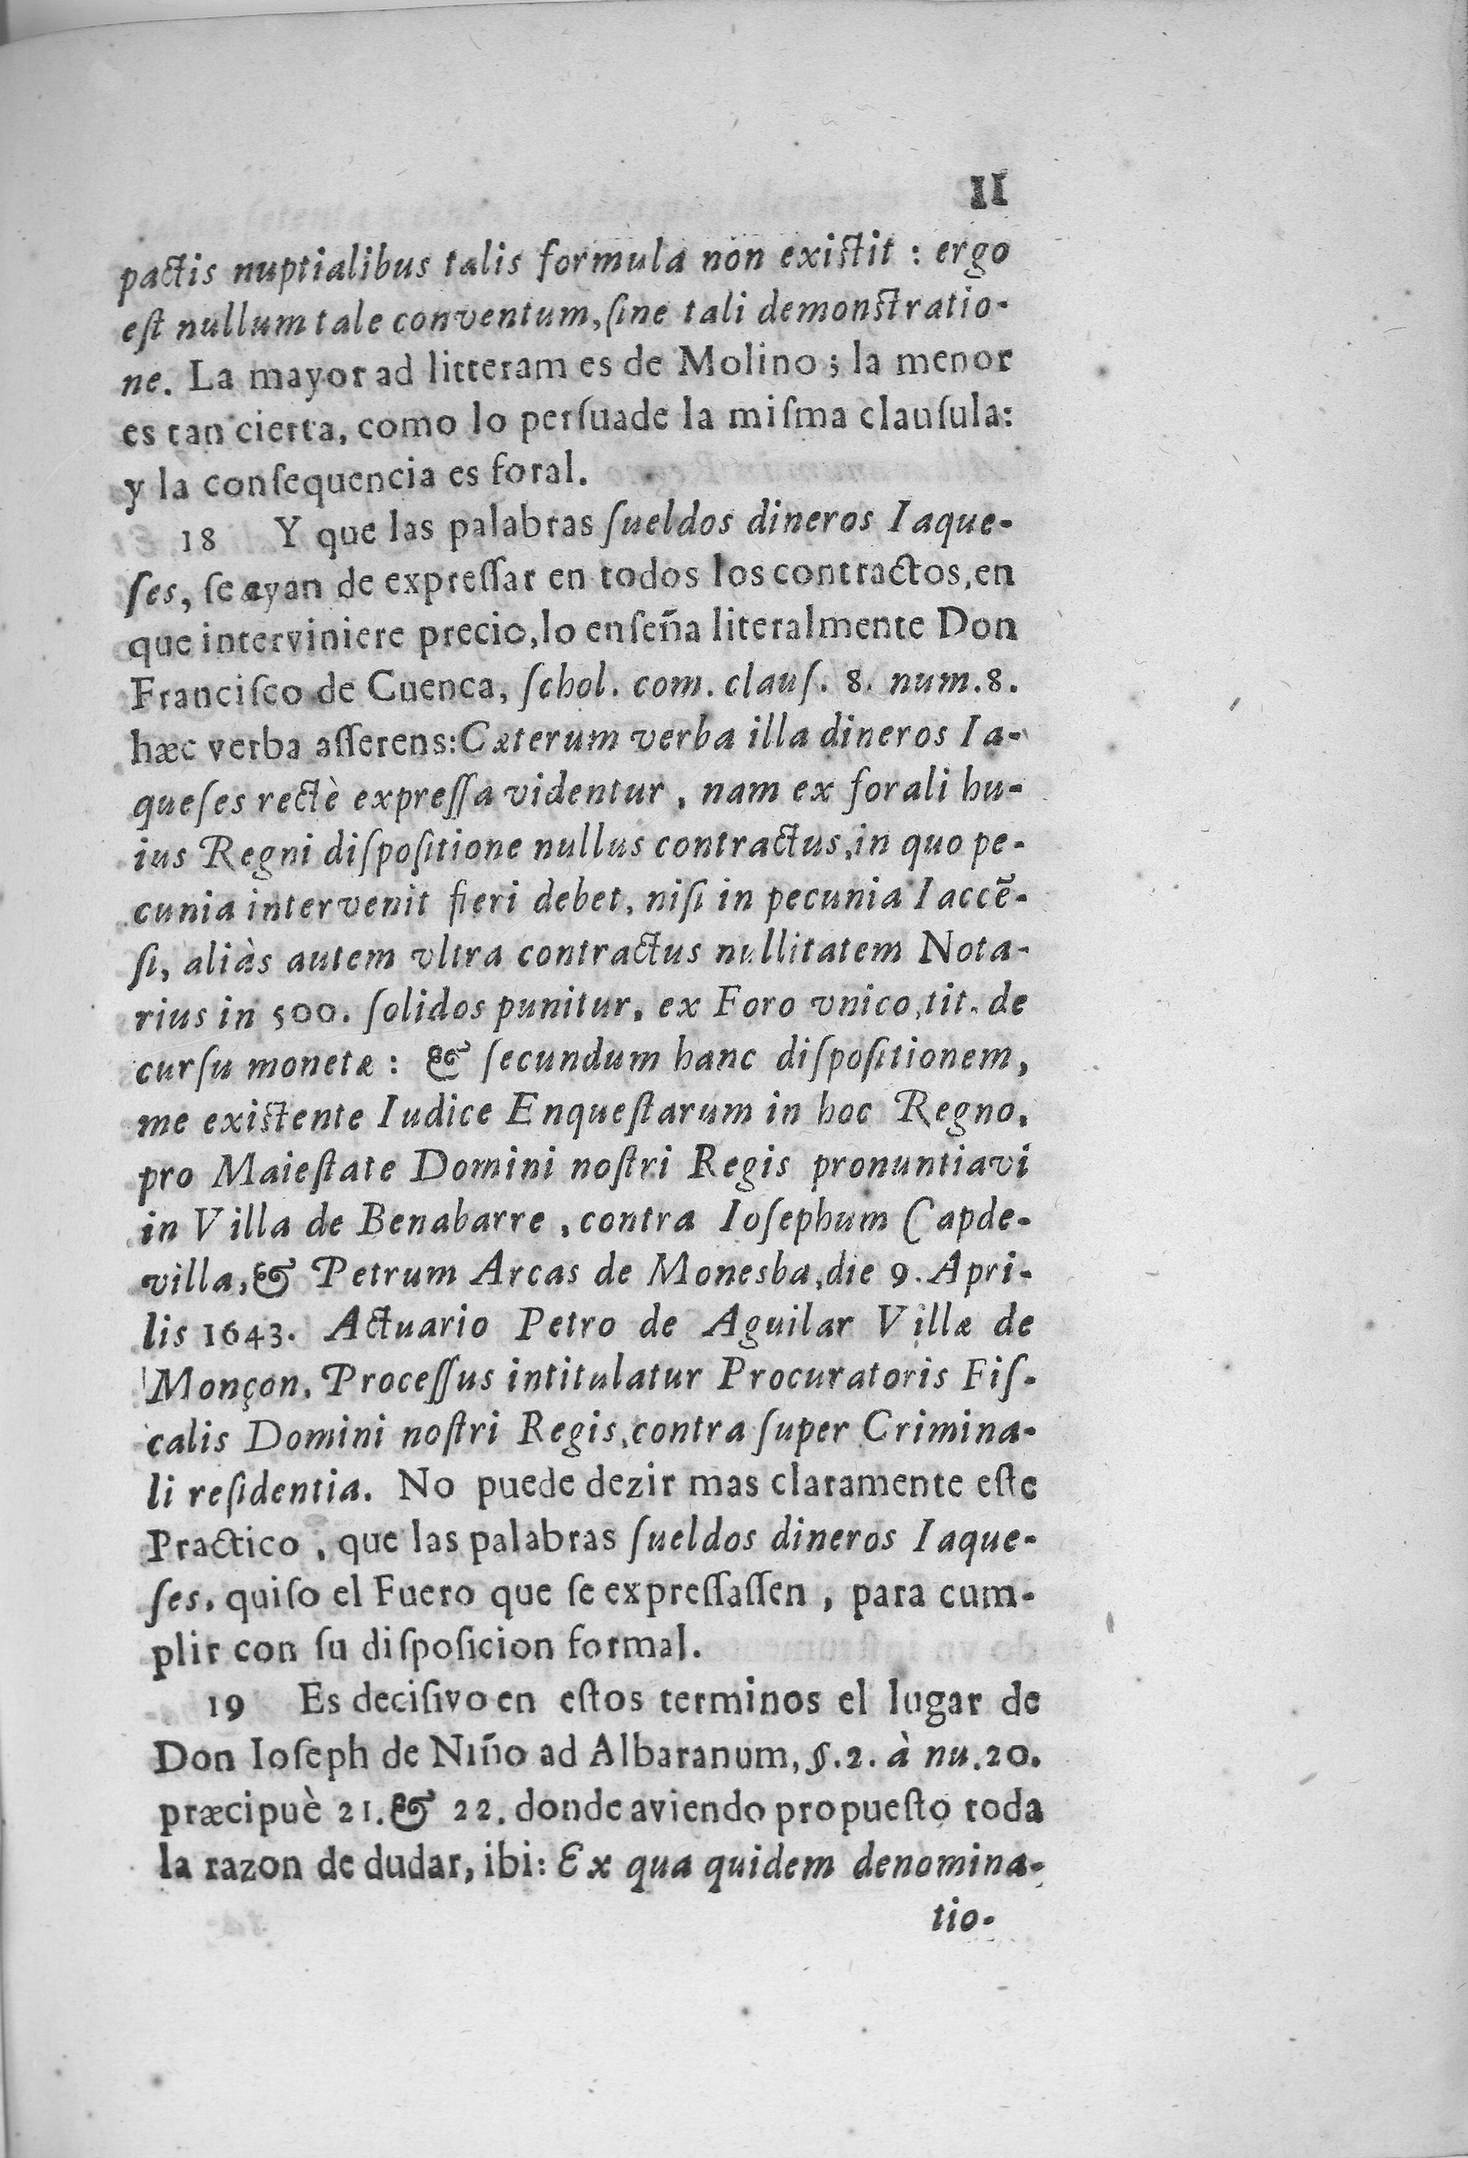 11
pactis nuptialibus talis formula non existit : ergo
eſt nullum tale conventum, ſine tali demonstratio-
ne. La mayor ad litteram es de Molino ; la menor
es tan cierta, como lo perſuade la miſma clauſula:
y la conſequencia es foral.
18 Y que las palabras ſueldos dineros Iaque-
ſes, ſe ayan de expreſſar en todos los contractos, en
que interviniere precio, lo enſeña literalmente Don
Franciſco de Cuenca, ſchol. com. clauſ. 8. num. 8.
hæc verba aſſerens: Cæterum verba illa dineros Ia-
queſes rectè expreſſa videntur, nam ex forali hu-
ius Regni diſpoſitione nullus contractus, in quo pe-
cunia intervenit fieri debet, niſi in pecunia Iaccẽ-
ſi, aliàs autem vltra contractus nullitatem Nota-
rius in 500. ſolidos punitur, ex Foro vnico, tit. de
curſu monetæ : & ſecundum hanc diſpoſitionem,
me existente Iudice Enqueſtarum in hoc Regno,
pro Maieſtate Domini noſtri Regis pronuntiavi
in Villa de Benabarre, contra Ioſephum Capde-
villa, & Petrum Arcas de Monesba, die 9. Apri-
lis 1643. Actuario Petro de Aguilar Villæ de
Monçon, Proceſſus intitulatur Procuratoris Fiſ-
calis Domini noſtri Regis, contra ſuper Crimina-
li reſidentia. No puede dezir mas claramente eſte
Practico, que las palabras ſueldos dineros Iaque-
ſes, quiſo el Fuero que ſe expreſſaſſen, para cum-
plir con ſu diſpoſicion formal.
19 Es deciſivo en eſtos terminos el lugar de
Don Ioſeph de Niño ad Albaranum, §. 2. à nu. 20.
præcipuè 21. & 22. donde aviendo propueſto toda
la razon de dudar, ibi: Ex qua quidem denomina-
tio-